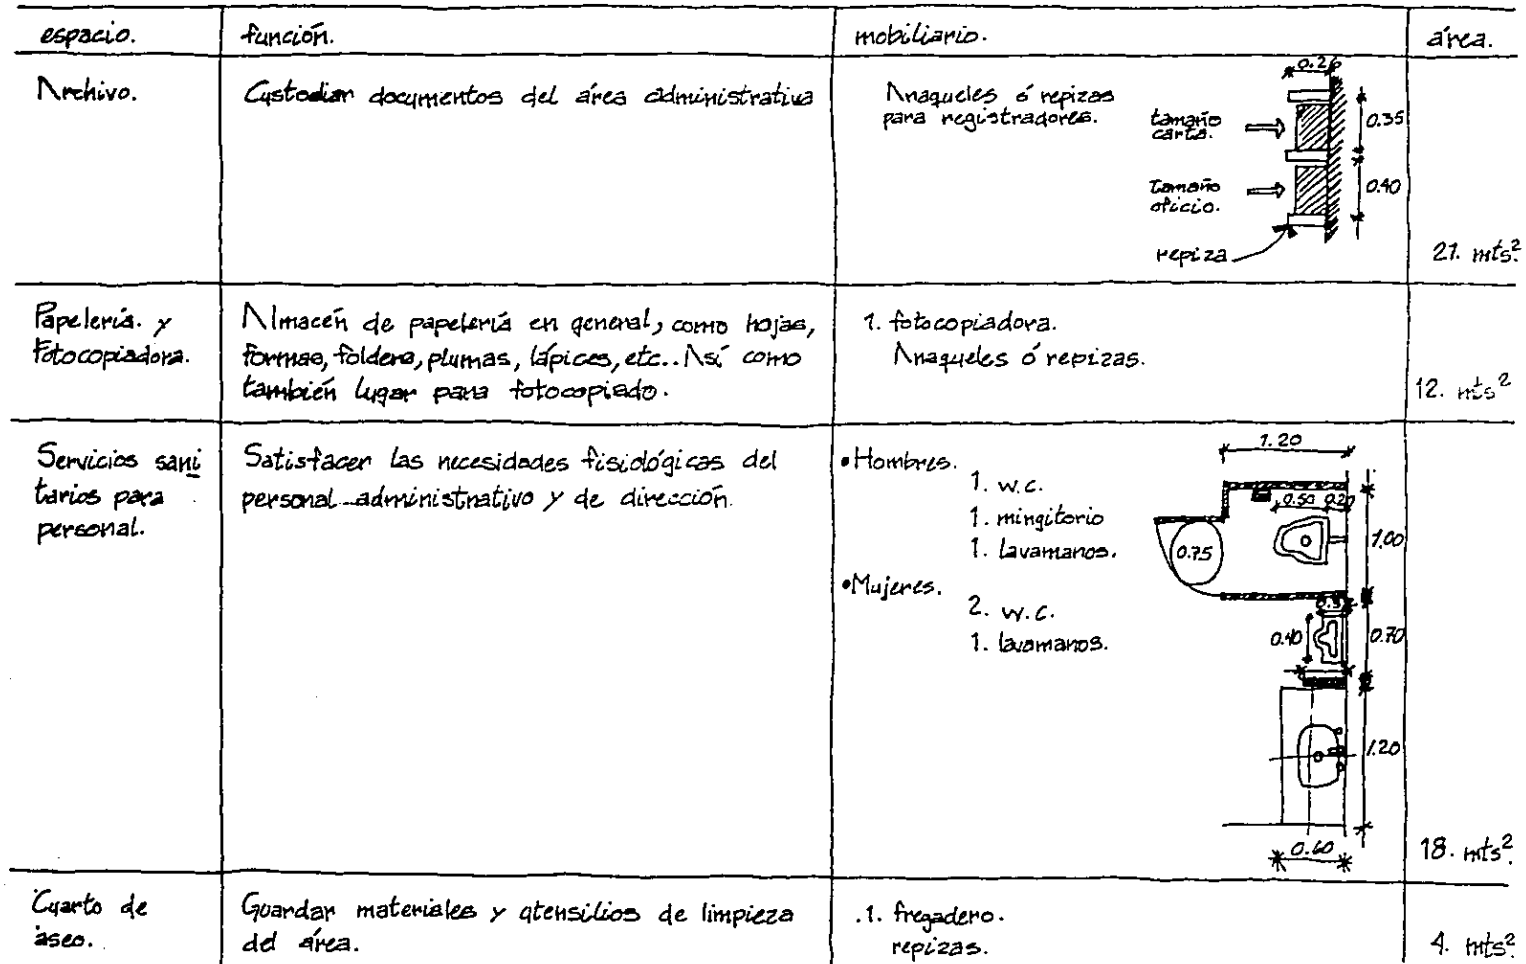 espacio. función. mobiliario. área.
Archivo. Custodiar documentos del área administrativa
Anaqueles ó repizas
para registradores.
tamaño
carta.
tamaño
oficio.
repiza
0.35
0.40
21. mts².
Papelería. y
fotocopiadora.
Almacén de papelería en general, como hojas,
formas, folders, plumas, lápices, etc.. Así como
también lugar para fotocopiado.
1. fotocopiadora.
Anaqueles ó repizas.
12. mts²
Servicios sani
tarios para
personal.
Satisfacer las necesidades fisiológicas del
personal administrativo y de dirección.
•Hombres.
1. w.c.
1. mingitorio
1. lavamanos.
•Mujeres.
2. w.c.
1. lavamanos.
1.20
0.50 0.20
0.75
1.00
0.40
0.70
1.20
0.60
18. mts².
Cuarto de
aseo.
Guardar materiales y utensilios de limpieza
del área.
.1. fregadero.
repizas.
4. mts².